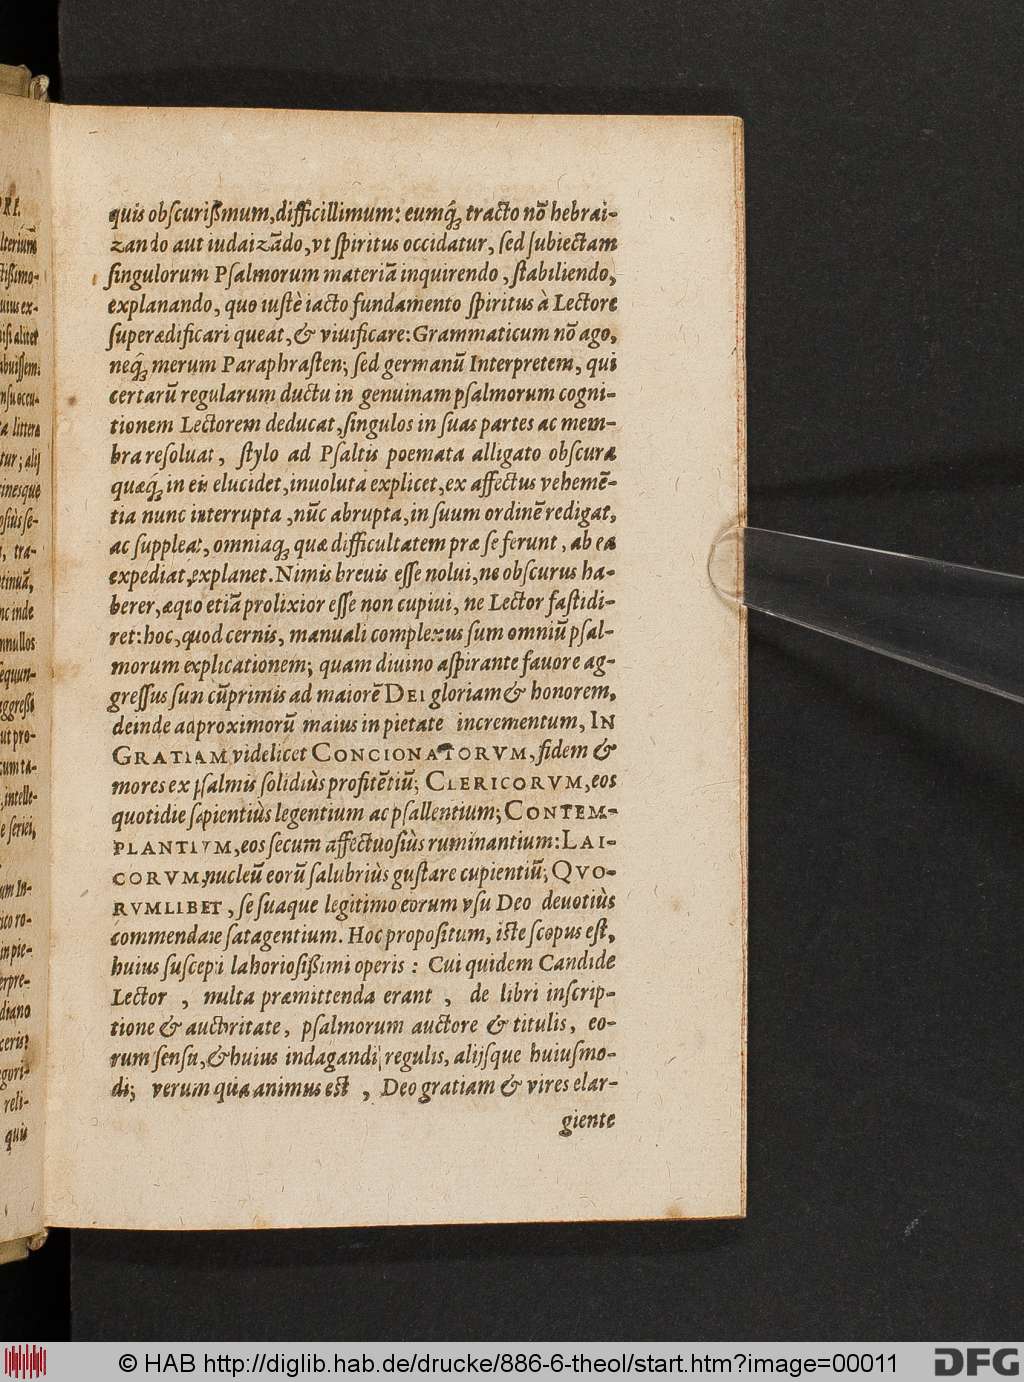 quis obſcurißimum, difficillimum: eumq́ꝫ tracto nõ hebrai-
zando aut iudaizãdo, vt ſpiritus occidatur, ſed ſubiectam
ſingulorum Pſalmorum materiã inquirendo, ſtabiliendo,
explanando, quo iuſtè iacto fundamento ſpiritus à Lectore
ſuperædificari queat, & viuificare: Grammaticum nõ ago,
neq́ꝫ merum Paraphraſten; ſed germanũ Interpretem, qui
certarũ regularum ductu in genuinam pſalmorum cogni-
tionem Lectorem deducat, ſingulos in ſuas partes ac mem-
bra reſoluat, ſtylo ad Pſaltis poemata alligato obſcura
quæq́ꝫ in eis elucidet, inuoluta explicet, ex affectus vehemẽ-
tia nunc interrupta, nũc abrupta, in ſuum ordinẽ redigat,
ac ſuppleat, omniaqꝫ quæ difficultatem præ ſe ferunt, ab ea
expediat, explanet. Nimis breuis eſſe nolui, ne obſcurus ha-
berer, æquo etiã prolixior eſſe non cupiui, ne Lector faſtidi-
ret: hoc, quod cernis, manuali complexus ſum omniũ pſal-
morum explicationem; quam diuino aſpirante fauore ag-
greſſus ſum cũprimis ad maiorẽ DEI gloriam & honorem,
deinde ad proximorũ maius in pietate incrementum, IN
GRATIAM videlicet CONCIONATORVM, fidem &
mores ex pſalmis ſolidiùs profitẽtiũ; CLERICORVM, eos
quotidie ſapientiùs legentium ac pſallentium; CONTEM-
PLANTIVM, eos ſecum affectuoſiùs ruminantium: LAI-
CORVM, nucleũ eorũ ſalubriùs guſtare cupientiũ; QVO-
RVMLIBET, ſe ſuaque legitimo eorum vſu Deo deuotiùs
commendare ſatagentium. Hoc propoſitum, iſte ſcopus eſt,
huius ſuſcepti laborioſißimi operis: Cui quidem Candide
Lector, multa præmittenda erant, de libri inſcrip-
tione & auctoritate, pſalmorum auctore & titulis, eo-
rum ſenſu, & huius indagandi regulis, alijſque huiuſmo-
di; verum quia animus est, Deo gratiam & vires elar-
giente
© HAB http://diglib.hab.de/drucke/886-6-theol/start.htm?image=00011
DFG